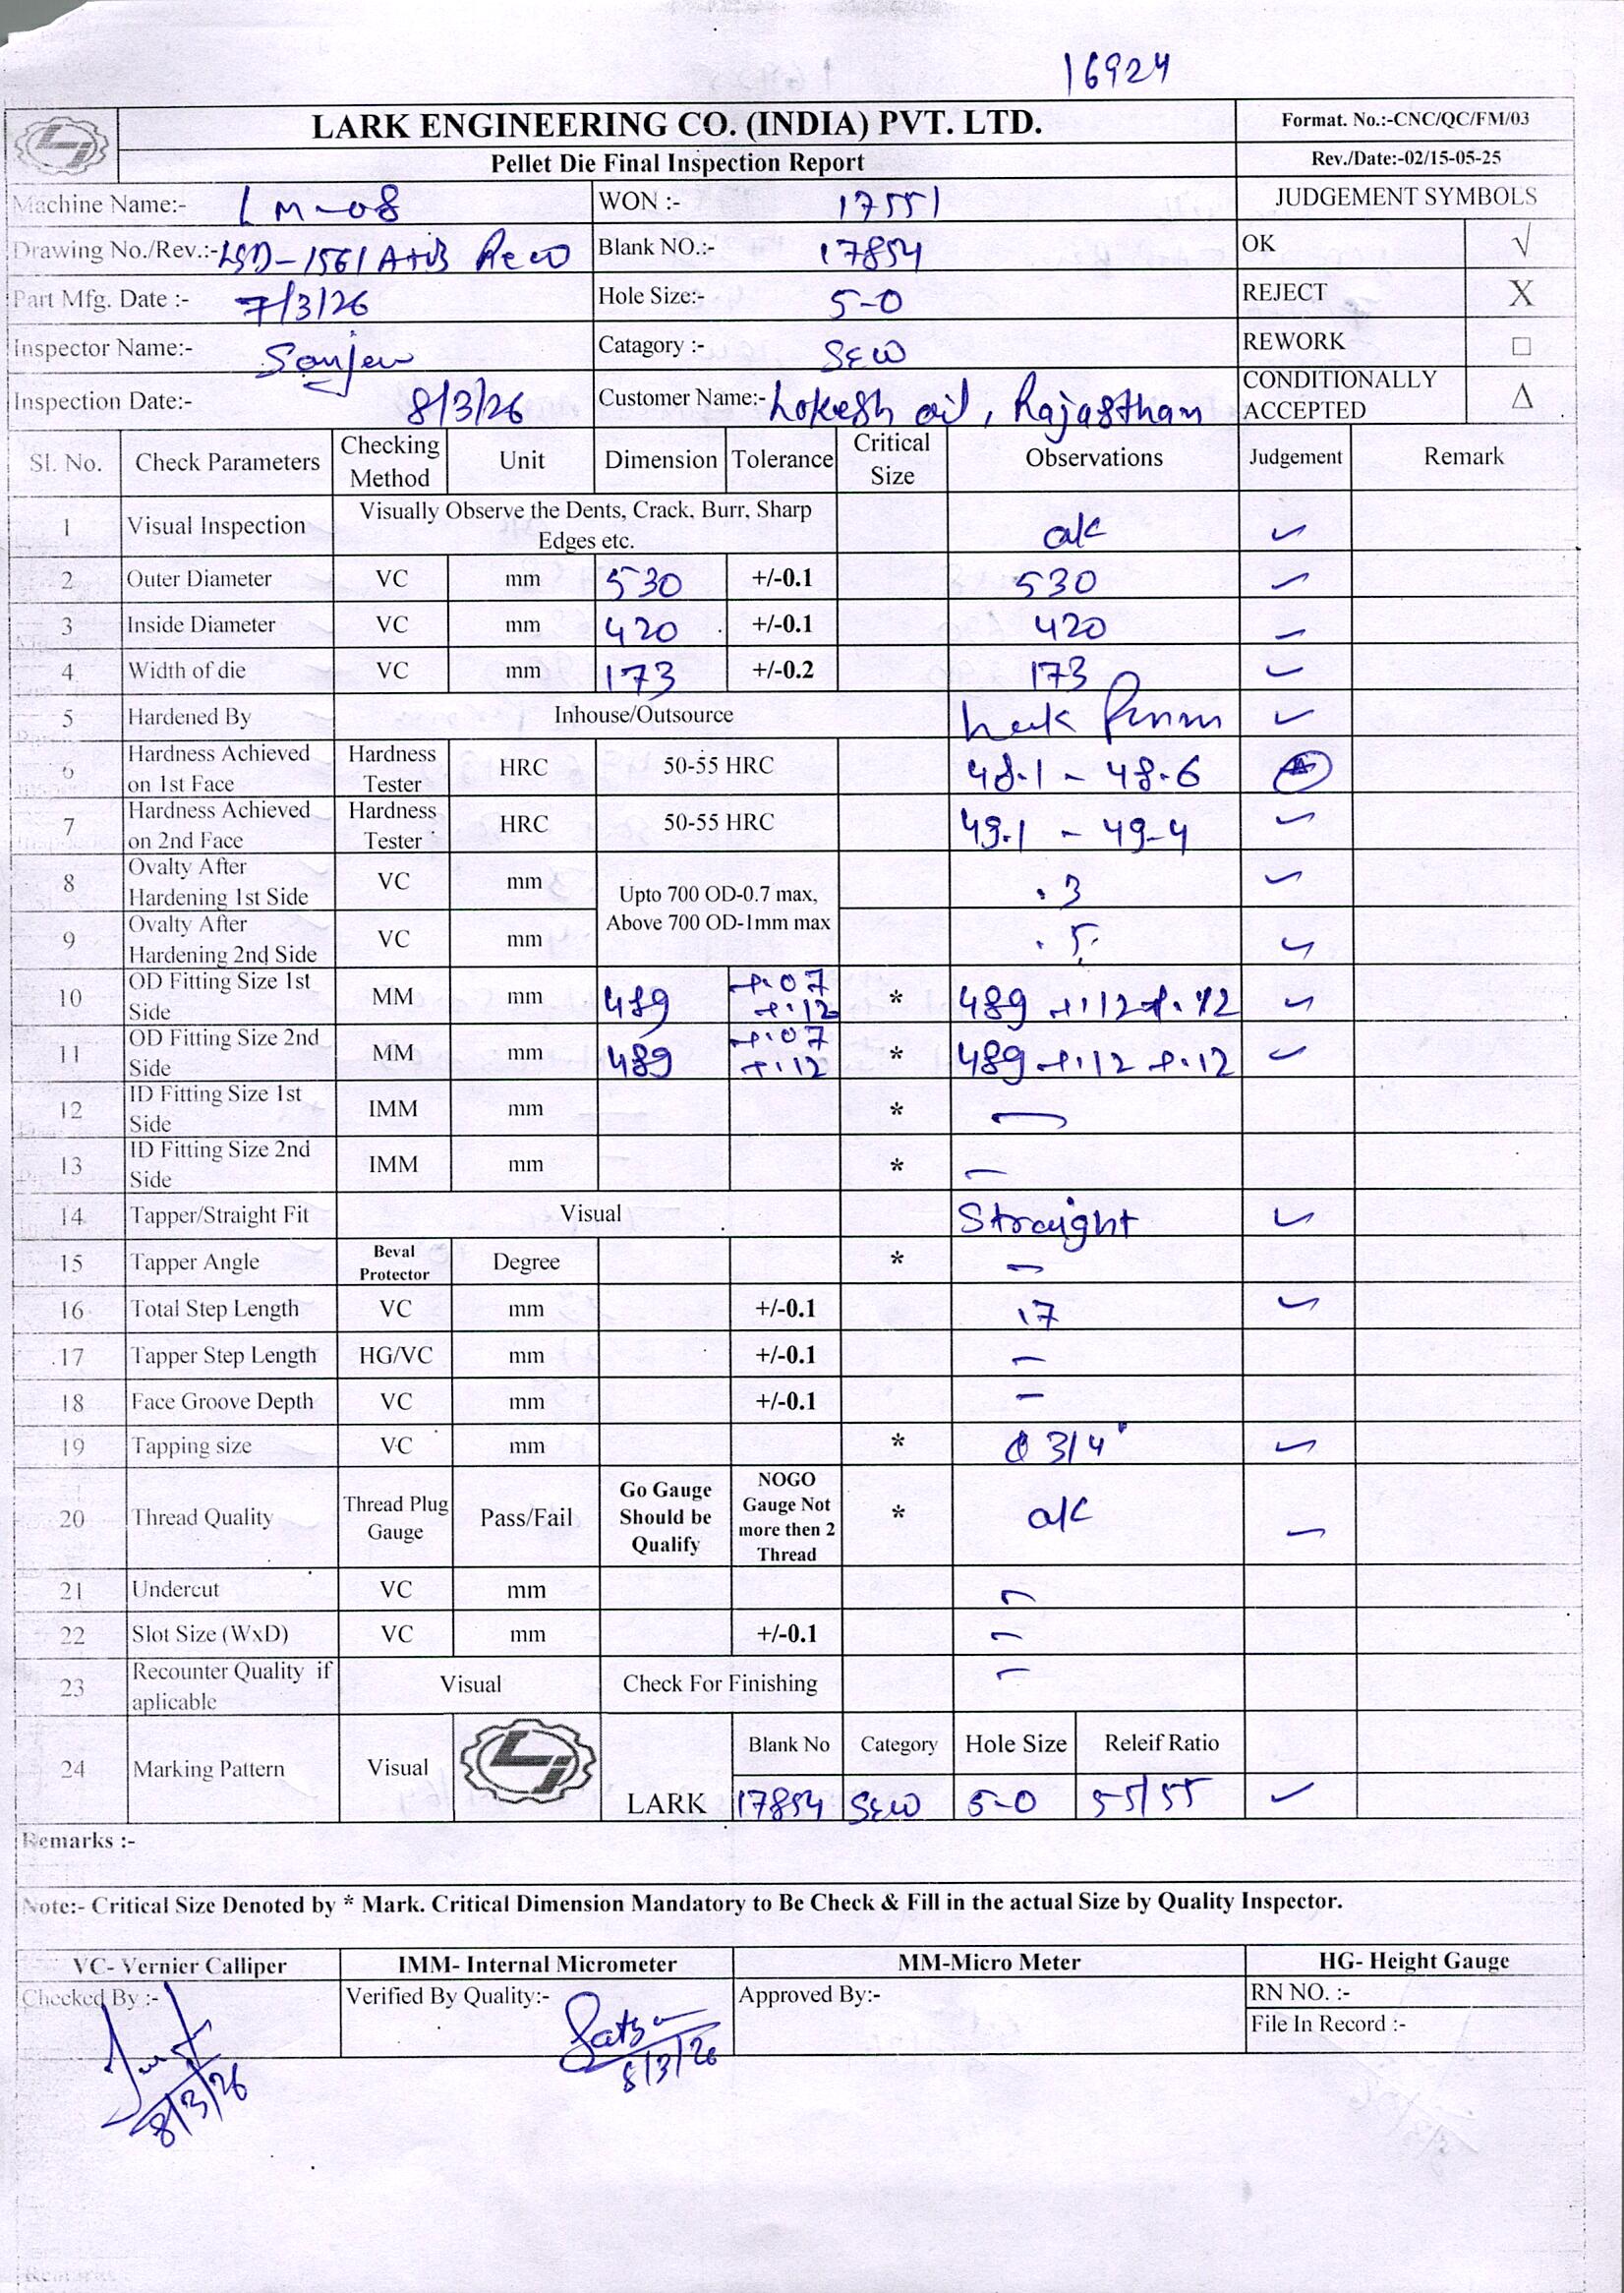 16924
LARK ENGINEERING CO. (INDIA) PVT. LTD.
Format. No.:-CNC/QC/FM/03
Pellet Die Final Inspection Report
Rev./Date:-02/15-05-25
Machine Name:- LM-08 WON :- 17551 JUDGEMENT SYMBOLS
Drawing No./Rev.:- LSD-1561 A+B Blank NO.:- 17854 OK √
Part Mfg. Date :- 7/3/26 Hole Size:- 5-0 REJECT X
Inspector Name:- Sanjeev Catagory :- SEW REWORK □
Inspection Date:- 8/3/26 Customer Name:- Lokesh oil, Rajasthan CONDITIONALLY ACCEPTED Δ
Sl. No. Check Parameters Checking Method Unit Dimension Tolerance Critical Size Observations Judgement Remark
1 Visual Inspection Visually Observe the Dents, Crack, Burr, Sharp Edges etc. o/k ✓
2 Outer Diameter VC mm 530 +/-0.1 530 ✓
3 Inside Diameter VC mm 420 +/-0.1 420 ✓
4 Width of die VC mm 173 +/-0.2 173 ✓
5 Hardened By Inhouse/Outsource ✓
6 Hardness Achieved on 1st Face Hardness Tester HRC 50-55 HRC 48.1 - 48.6
7 Hardness Achieved on 2nd Face Hardness Tester HRC 50-55 HRC 49.1 - 49-4 ✓
8 Ovalty After Hardening 1st Side VC mm Upto 700 OD-0.7 max, Above 700 OD-1mm max .3 ✓
9 Ovalty After Hardening 2nd Side VC mm .5 ✓
10 OD Fitting Size 1st Side MM mm 489 +.07 +.12 * 489 +.12 +.12 ✓
11 OD Fitting Size 2nd Side MM mm 489 +.07 +.12 * 489 +.12 +.12 ✓
12 ID Fitting Size 1st Side IMM mm * —
13 ID Fitting Size 2nd Side IMM mm * —
14 Tapper/Straight Fit Visual Straight ✓
15 Tapper Angle Beval Protector Degree * —
16 Total Step Length VC mm +/-0.1 17 ✓
17 Tapper Step Length HG/VC mm +/-0.1 —
18 Face Groove Depth VC mm +/-0.1 —
19 Tapping size VC mm * 3/4" ✓
20 Thread Quality Thread Plug Gauge Pass/Fail Go Gauge Should be Qualify NOGO Gauge Not more then 2 Thread * o/k ✓
21 Undercut VC mm —
22 Slot Size (WxD) VC mm +/-0.1 —
23 Recounter Quality if aplicable Visual Check For Finishing —
24 Marking Pattern Visual LARK Blank No Category Hole Size Releif Ratio
17854 SEW 5-0 55/55 ✓
Remarks :-
Note:- Critical Size Denoted by * Mark. Critical Dimension Mandatory to Be Check & Fill in the actual Size by Quality Inspector.
VC- Vernier Calliper IMM- Internal Micrometer MM-Micro Meter HG- Height Gauge
Checked By :- Verified By Quality:- Approved By:- RN NO. :-
File In Record :-
8/3/26 8/3/26